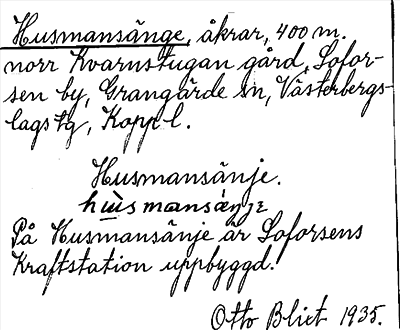 Husmansänge, åkrar, 400 m.
norr Kvarnstugan gård, Sofor-
sen by, Grangärde sn, Västerbergs-
lags tg, Kopp l.
Husmansänje.
På Husmansänje är Soforsens
Kraftstation uppbyggd.
Otto Blixt 1935.